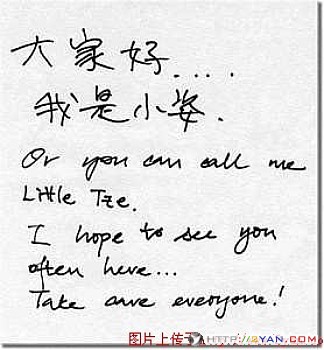 大家好....
我是小姿.
Or you can call me
Little Tze.
I hope to see you
often here...
Take care everyone!
图片上传于